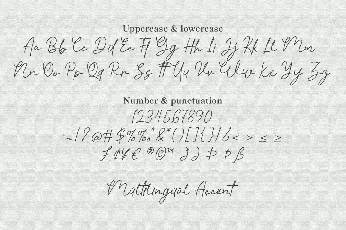 Uppercase & lowercase
Aa Bb Cc Dd Ee Ff Gg Hh Ii Jj Kk Ll Mm
Nn Oo Pp Qq Rr Ss Tt Uu Vv Ww Xx Yy Zz
Number & punctuation
1234567890
~!?@#$%‰^&*()[]{}/\< > ≤ ≥
£ ¢ ¥ € ®©™
Multilingual Accent